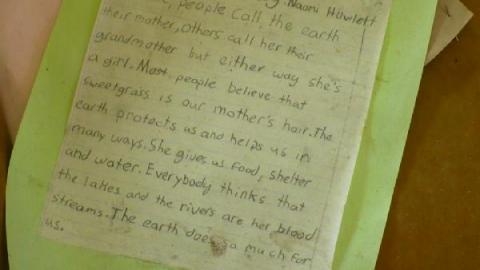 Naomi Howlett
people call the earth
their mother, others call her their
grandmother but either way she's
a girl. Most people believe that
sweetgrass is our mother's hair. The
earth protects us and helps us in
many ways. She gives us food, shelter
and water. Everybody thinks that
the lakes and the rivers are her blood
streams. The earth does so much for
us.